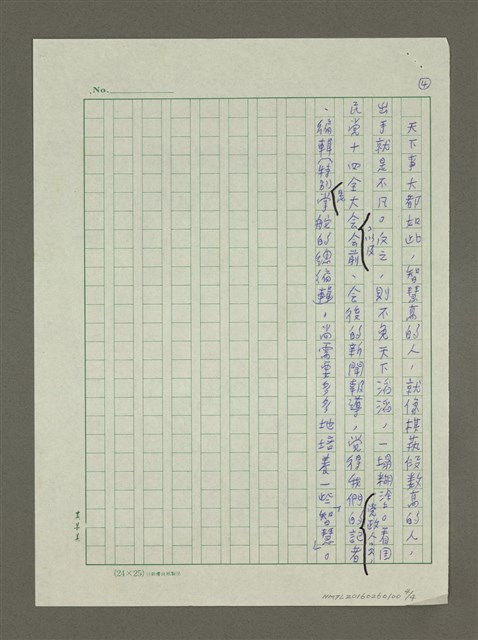 ④
No.
天下事大都如此，智慧高的人，就像棋藝段數高的人，
出手就是不凡。反之，則不免天下滔滔，一塌糊塗。看国
民党十四全大会会前、会後的新聞報導，覚得我們的記者
、編輯（特別掌舵的總編輯），尚需要多多地培養一些「智慧」。
以及
是
党政人久
(24×25)
NMTL20160260100 4/4